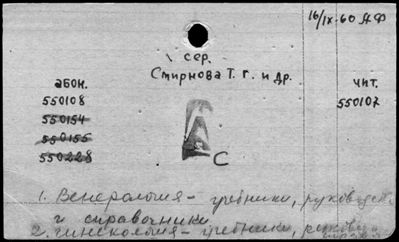 16/IX-60 АФ
сер.
Смирнова Т. Г. и др.
абон.
550108
550154
550155
550228
чит.
550107
С
1. Венерология - учебники, руководства
и справочники
2. гинекология - учебники,